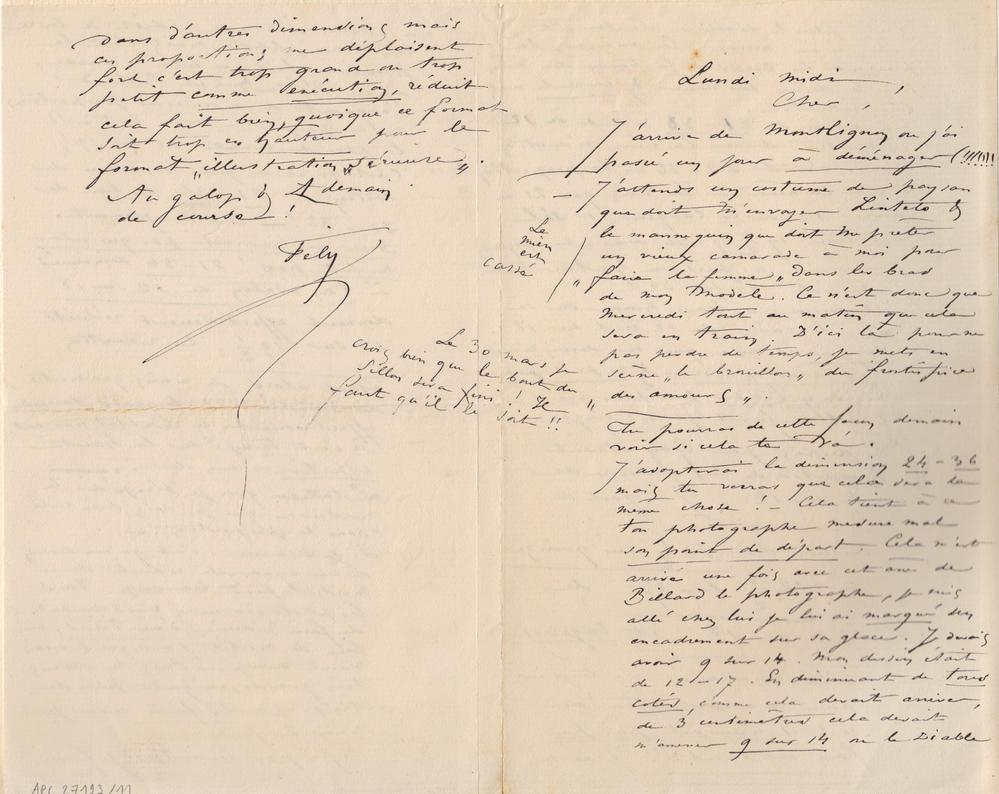 Lundi midi
Cher,
J'arrive de Montlignon où j'ai
passé un jour à déménager (!!!!!!!
— J'attends un costume de paysan
que doit m'envoyer Linteto &
le mannequin que doit me prêter
un vieux camarade à moi pour
„ faire la femme „ dans les bras
de mon modèle. Ce n'est donc que
Mercredi tout au matin que cela
sera en train. D'ici là pour ne
pas perdre de temps, je mets en
scène „ le brouillon „ du frontispice
„ des amours „.
Le
mien
est
cassé
Tu pourras de cette façon demain
voir si cela te va.
J'adopterai la dimension 24 – 36
mais tu verras que cela sera la
même chose ! – Cela tient à ce
ton photographe mesure mal
son point de départ. Cela m'est
arrivé une fois avec cet âne de
Billard le photographe, je suis
allé chez lui je lui ai marqué un
encadrement sur sa glace. Je devais
avoir 9 sur 14. Mon dessin était
de 12 – 17. En diminuant de tous
côtés, comme cela devait arriver,
de 3 centimètres cela devait
m'amener 9 sur 14 ou le Diable
dans d'autres dimensions mais
ces proportions me déplaisent
fort c'est trop grand ou trop
petit comme exécution, réduit
cela fait bien, quoique ce format
soit trop en hauteur pour le
format „illustration sérieuse„.
Au galop & à demain
de course !
Fély
Le 30 mars je
crois bien que le bout du
Sillon sera fini ! Il
faut qu'il le soit !!
APC 27193/11